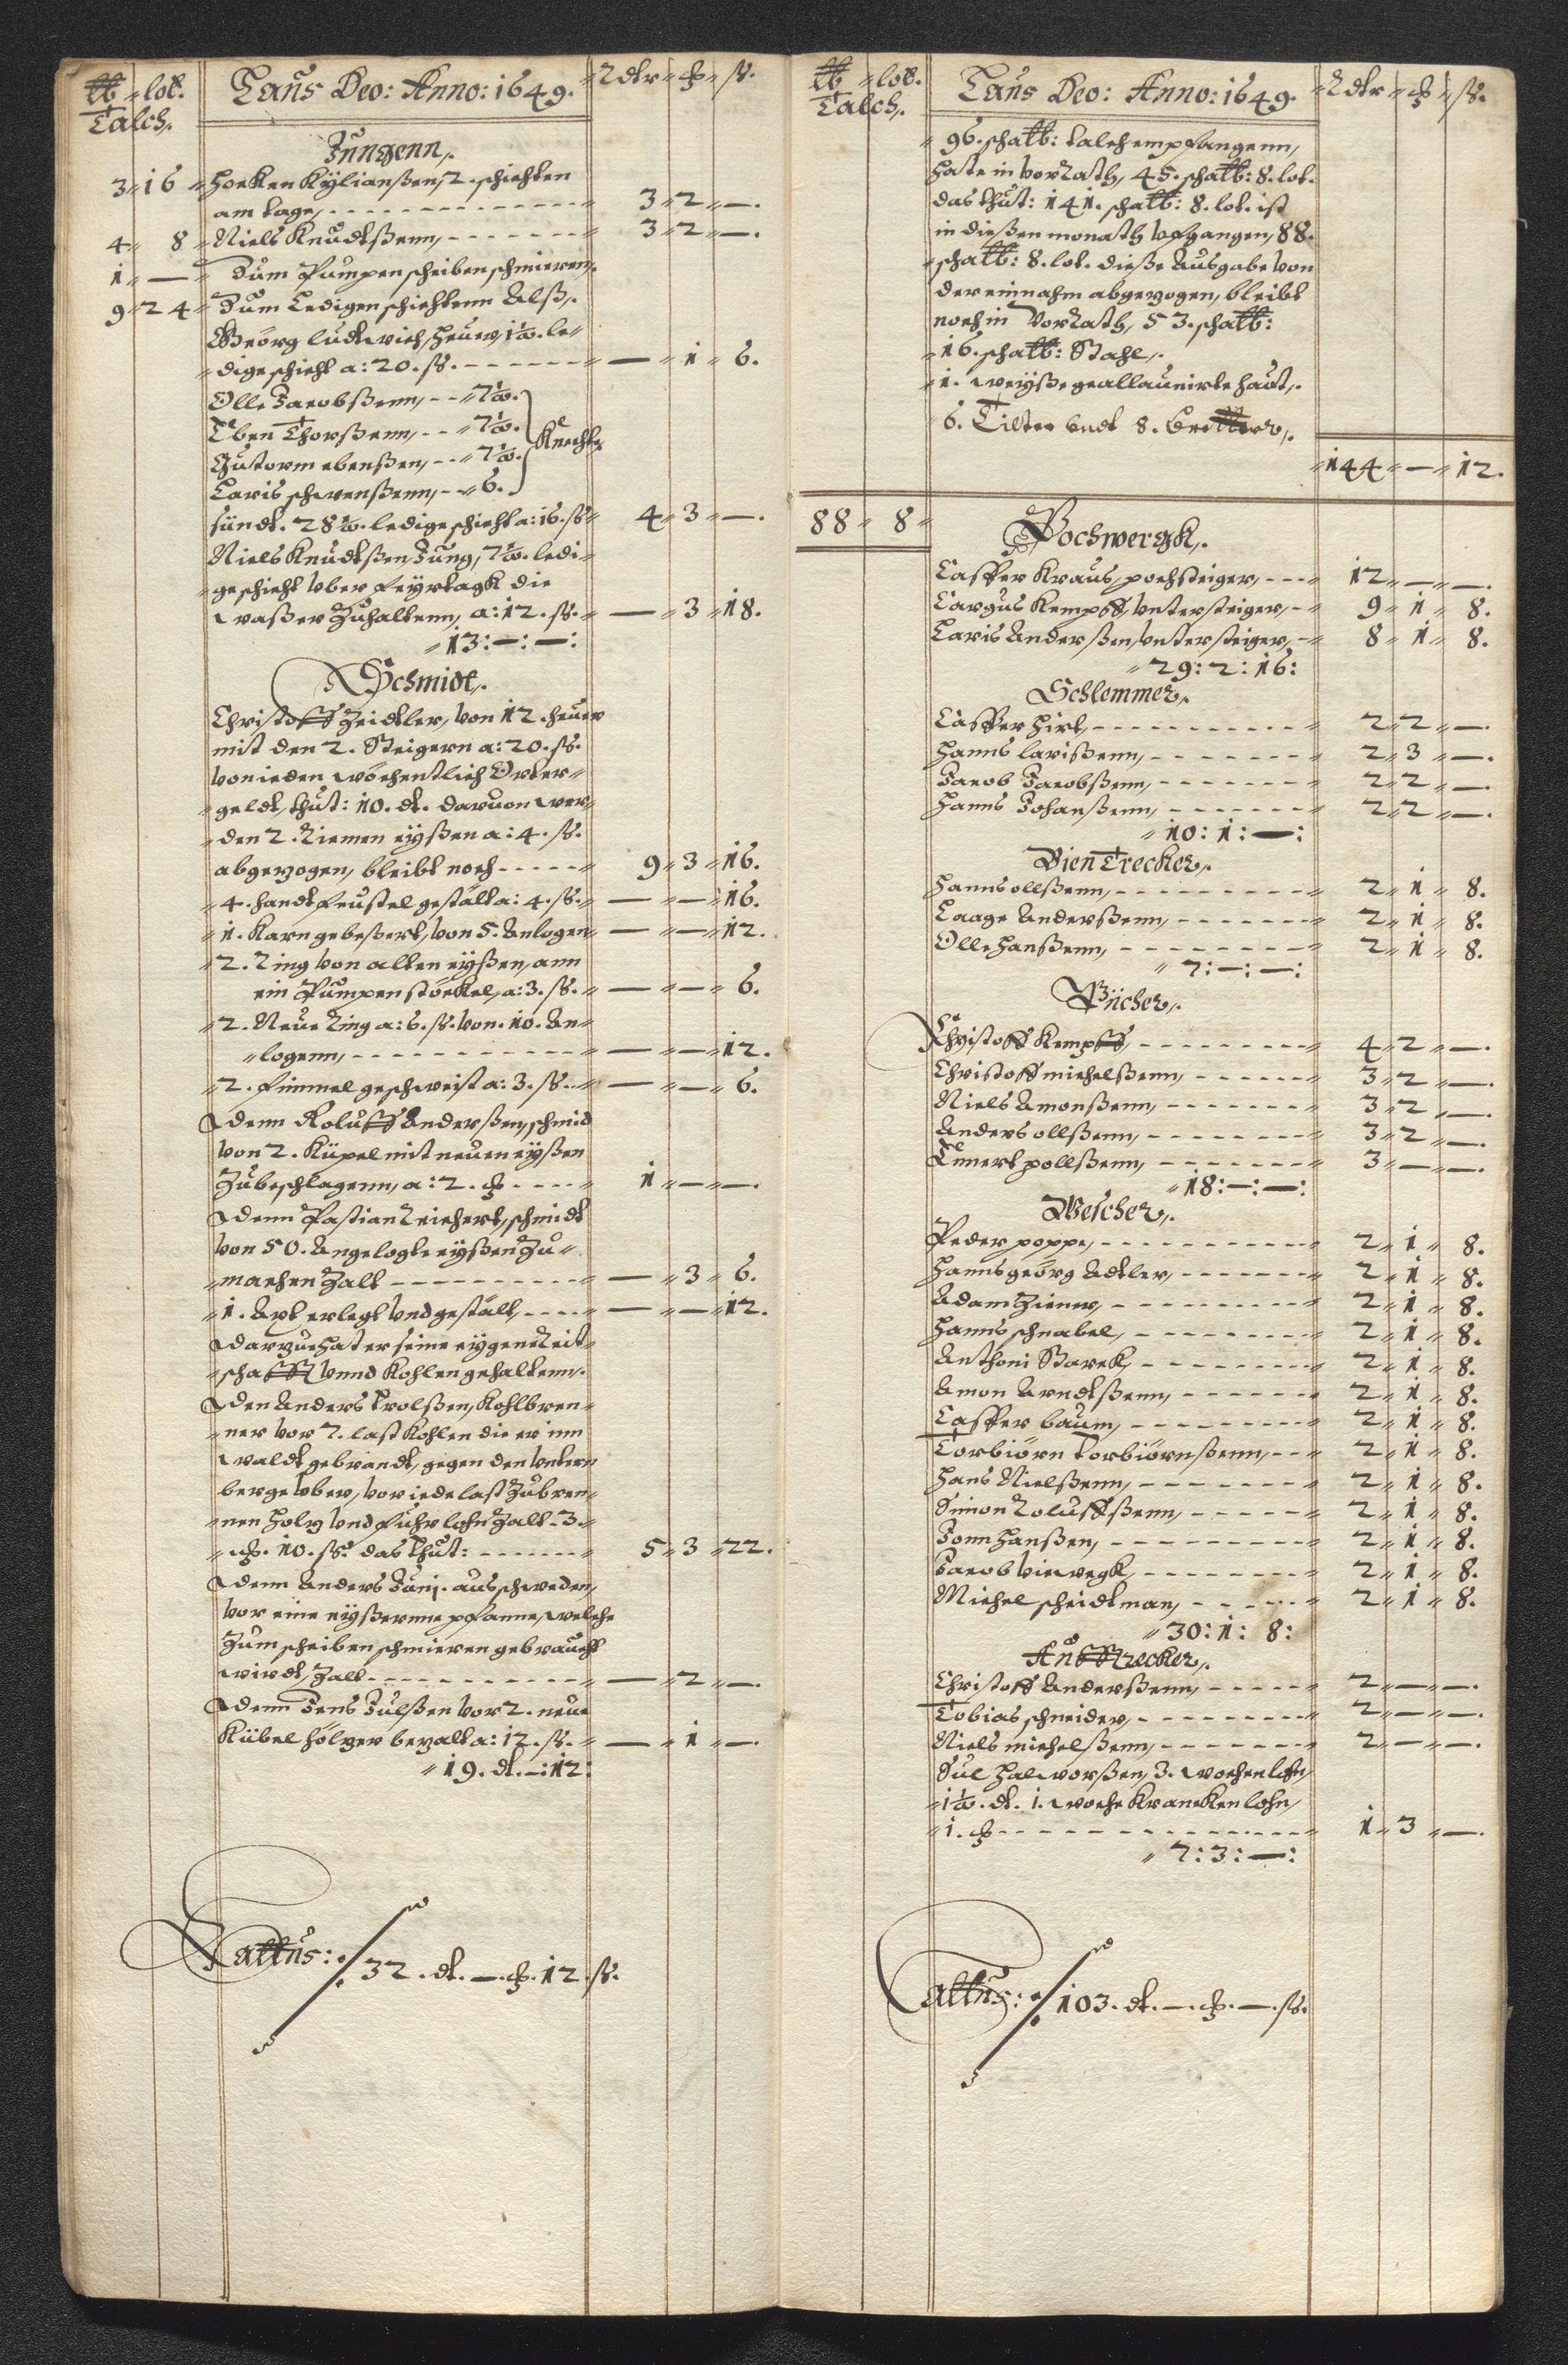 ℔ lot. Laus Deo: Anno: 1649. Rdlr ₰ ß.
Talch.
Jungenn,
3 16 Hocken Kÿlianßen, 2. schichten
am tage, - - - 3 2 —.
4 8 Niels Knudtßenn, - - - 3 2 —.
1 — Zum Pumpen scheiben schmieren,
9 24 Zum Ledigen schichtenn Alß,
Georg ludtwich, Heuer, 1½. le-
dige schicht a: 20. ß. - - - — 1 6.
Olle Jacobßenn, - - 7½.
Eben Thorßenn, - - 7½. Knechte
Gutorm ebenßen, - - 7½.
Laris schwenßenn, - - 6.
sündt. 28½. ledige schicht a: 16. ß 4 3 —.
Niels Knudtßen Jung, 7½. ledi-
ge schicht vber feÿrtagk die
waßer Zuhaltenn, a: 12. ß. — 3 18.
13: —: —:
Schmidt,
Christoff Zeidtler, von 12. heuer
mit den 2. Steigern a: 20. ß.
von ieden wöchentlich Örter-
geldt, thut: 10. dl. daruon wer-
den 2. Riemen eÿßen a: 4. ß.
abgezogen, bleibt noch - - - 9 3 16.
4. handt feustel gestält a: 4. ß. — — 16.
1. Karn gebeßert, von 5. Anlogen — — 12.
2. Ring von alten eÿßen, ann
ein Pumpen stöckel, a: 3. ß. — — 6.
2. Neue Ring a: 6. ß. von. 10. An-
logenn, - - - — — 12.
2. fimmel geschweist a: 3. ß. — — 6.
denn Roluff Anderßen, schmid
von 2. Küpel mit neuen eÿßen
Zubeschlagenn, a: 2. ₰ - - - 1 — —.
denn Pastian Reichert, schmidt
von 50. Angelogte eÿßen Zu-
machen Zalt - - - — 3 6.
1. Axt erlegt vnd gestält, - - - — — 12.
darzue hat er seine eÿgene Zeit-
schafft vnnd Kohlen gehaltenn,
den Anders Trolßen, Kohlbren-
ner vor 7. last Kohlen die er im
waldt gebrandt, gegen den vntern
berge vber, vor iede last Zubren-
nen holz vnd fuhrlohn Zalt 3.
₰. 10. ß. das thut: - - - 5 3 22.
denn Anders Juni. aus schweden,
vor eine eÿßerne pfanne, welche
Zum scheiben schmieren gebraucht
wirdt, Zalt - - - — 2 —.
denn Jens Julßen vor 2. neue
Kübel hölzer bezalt a: 12. ß. — 1 —.
19. dl. —: 12:
Lattus: 32. dl. —. ₰. 12. ß.
℔ lot. Laus Deo: Anno: 1649. Rdlr ₰ ß.
Talch.
96. scha℔: talch empfangenn,
hate in vorRath, 45. scha℔: 8. lot.
das thut: 141. scha℔: 8. lot. ist
in dießen monath vfgangen, 88.
scha℔: 8. lot. dieße Ausgabe von
der einnahm abgezogen, bleibt
noch in VorRath, 53. scha℔:
16. scha℔: Stahl,
1. weÿße geallaunirte haut,
6. Tilter vndt 8. bretter,
144 — 12.
88 8
Pochwergk,
Casper Kraus, pochsteiger, - - - 12 — —.
Cargus Kempff, vntersteiger, - 9 1 8.
Laris Anderßen, vntersteiger, - 8 1 8.
29: 2: 16:
Schlemmer,
Casper Hirt, - - - 2 2 —.
Hanns larißenn, - - - 2 3 —.
Jacob Jacobßenn, - - - 2 2 —.
Hanns Johanßenn, - - - 2 2 —.
10: 1: —:
Bien Trecker,
Hanns ollßenn, - - - 2 1 8.
Laage Anderßenn, - - - 2 1 8.
Olle Hanßenn, - - - 2 1 8.
7: —: —:
Pücher,
Christoff Kempff - - - 4 2 —.
Christoff michelßenn, - - - 3 2 —.
Niels Amonßenn, - - - 3 2 —.
Anders ollßenn, - - - 3 2 —.
Einert pollßenn, - - - 3 — —.
18: —: —:
Wescher,
Peder poppe, - - - 2 1 8.
Hanns georg Adtler, - - - 2 1 8.
Adam Ziener, - - - 2 1 8.
Hanns schnabel, - - - 2 1 8.
Anthoni Starck, - - - 2 1 8.
Amon Arndtßenn, - - - 2 1 8.
Casper baum, - - - 2 1 8.
Torbiörn Torbiörnßenn, - - 2 1 8.
Hans Nielßenn, - - - 2 1 8.
Simon Roluffßenn, - - - 2 1 8.
Jonn Hanßen, - - - 2 1 8.
Jacob vierwegk, - - - 2 1 8.
Michel scheidtman, - - - 2 1 8.
30: 1: 8:
Aufftrecker,
Christoff Anderßenn, - - - 2 — —.
Tobias schneider, - - - 2 — —.
Niels michelßenn, - - - 2 — —.
Jul Halworßen, 3. wochen lohn,
1½. dl. 1. woche Krancken lohn,
1. ₰ - - - 1 3 —.
7: 3: —:
Lattus: 103. dl. —. ₰. —. ß.